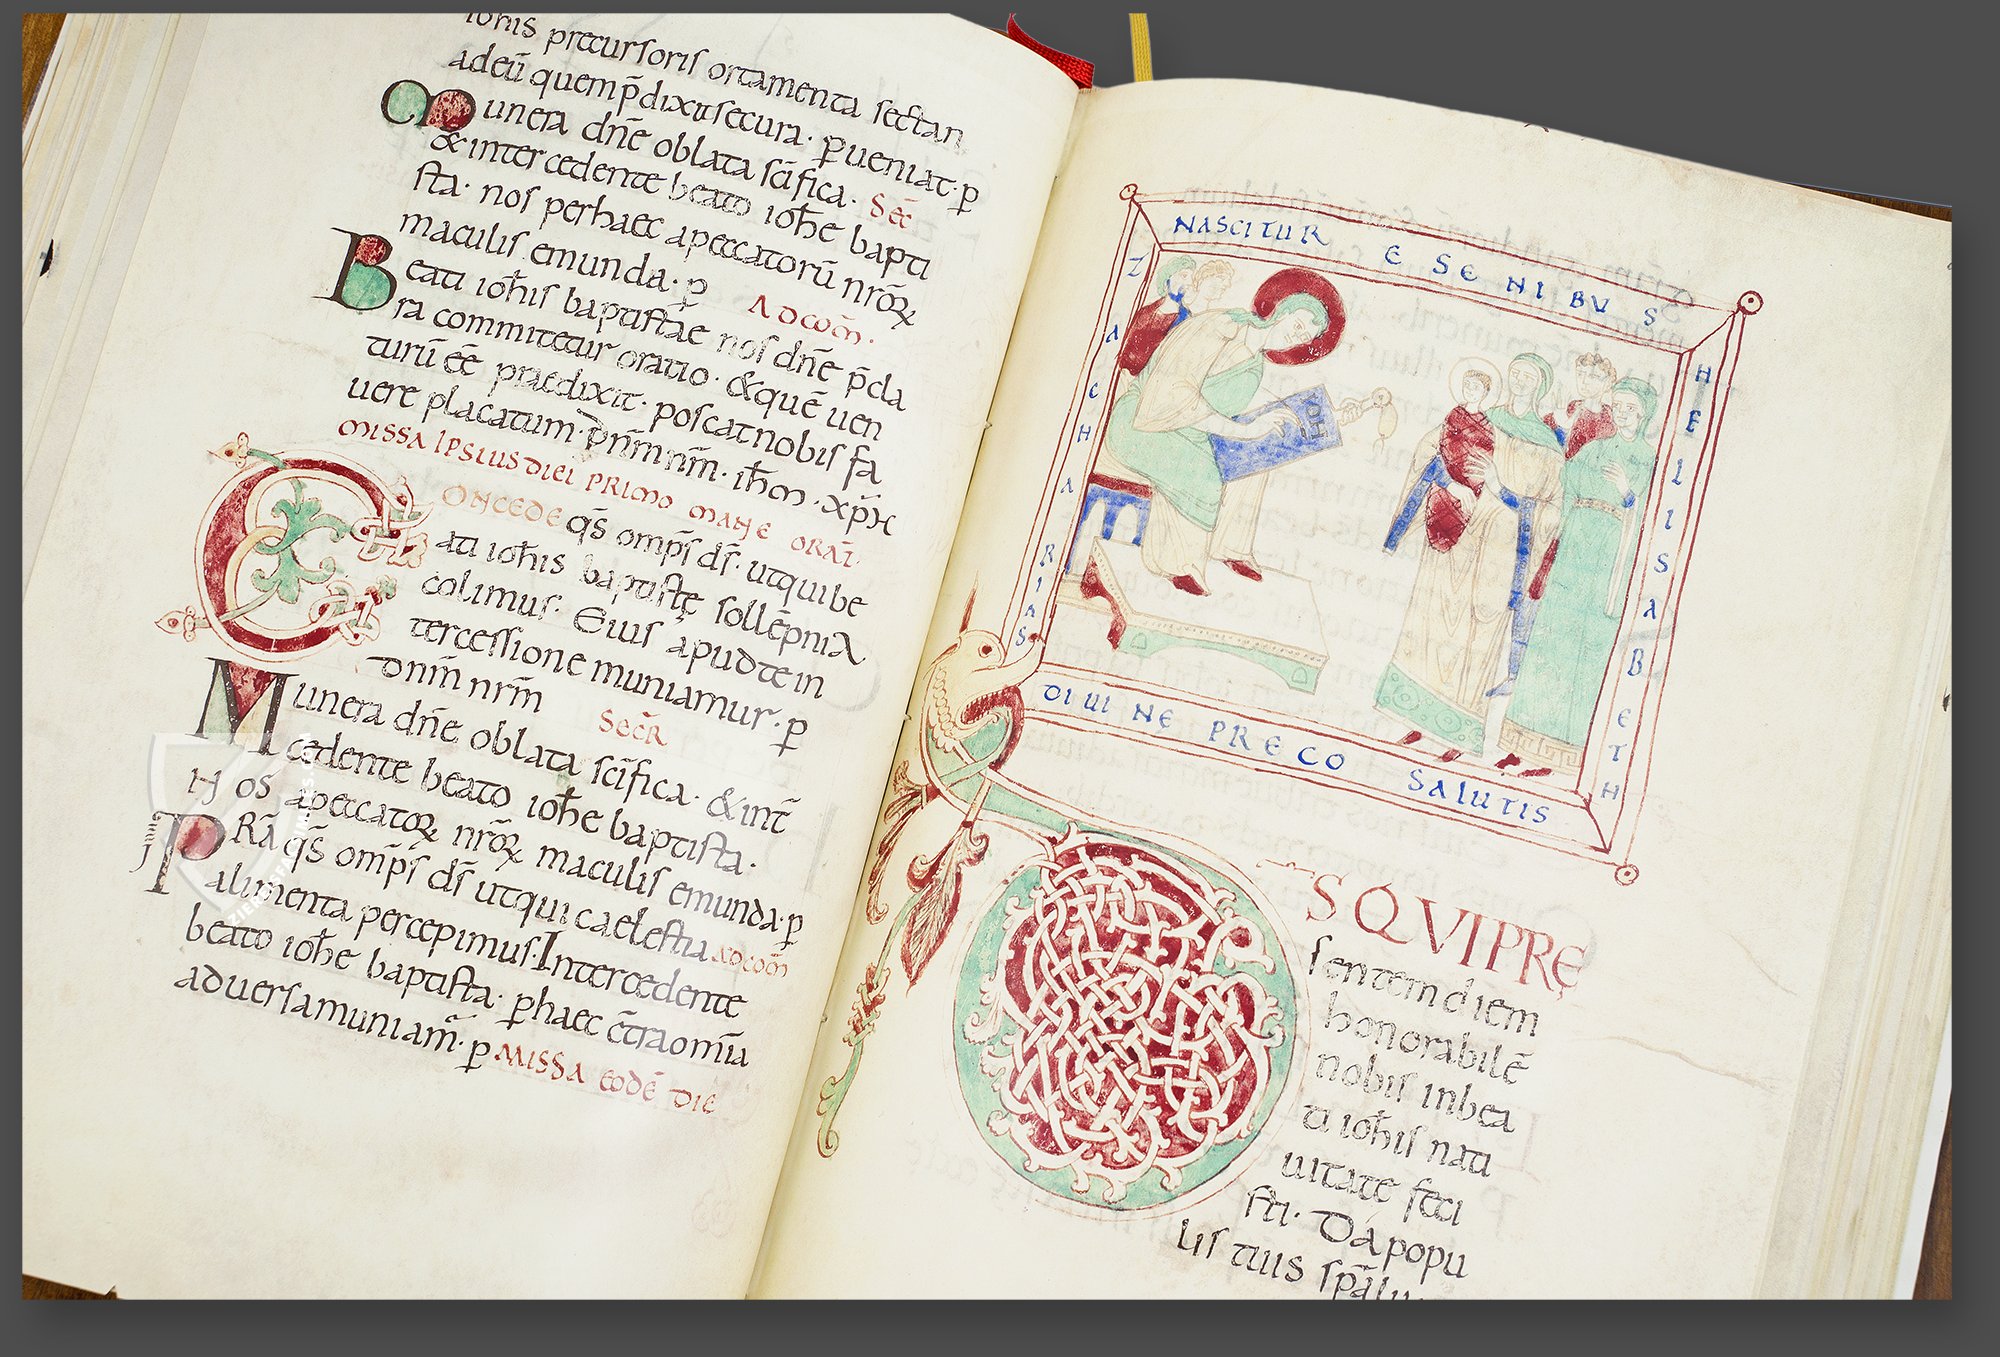 iohis precursoris ortamenta sectan
adeū quem p̄dixit secura· ꝑueniat· ꝑ
Munera dn̄e oblata sc̄ifica· Sec̄
& intercedente beato ioh̄e bapti
sta· nos per haec apeccatorū nr̄oꝝ
maculis emunda· ꝑ Ad com̄·
Beati ioh̄is baptistae nos dn̄e p̄cla
ra commitetur oratio· & quē uen
turū eē praedixit· poscat nobis fa
uere placatum· dn̄m nr̄m· ih̄m· xp̄m
MISSA IPSIUS DIEI PRIMO MANE ORAT̄·
CONCEDE qs̄ omp̄s ds̄· ut qui be
ati ioh̄is baptistę sollēpnia
colimus· Eius apud te in
tercessione muniamur· ꝑ
dn̄m nr̄m Secr̄
Munera dn̄e oblata sc̄ifica· & int̄
cedente beato ioh̄e baptista·
NOS apeccatoꝝ nr̄oꝝ maculis emunda· ꝑ
PRĀ qs̄ omp̄s ds̄ ut qui caelestia ad com̄
alimenta percepimus· Intercedente
beato ioh̄e baptista· ꝑ haec c̄tra om̄ia
aduersa muniam̄· ꝑ MISSA EODĒ DIE
NASCITUR E SENIBUS
ZACHARIAS
HELISABETH
DIUINĘ PRECO SALUTIS
IOH
DS QVI PRĘ
sentem diem
honorabilē
nobis in bea
ti ioh̄is nati
uitatę feci
sti· Dā popu
lis tuis sp̄aliu